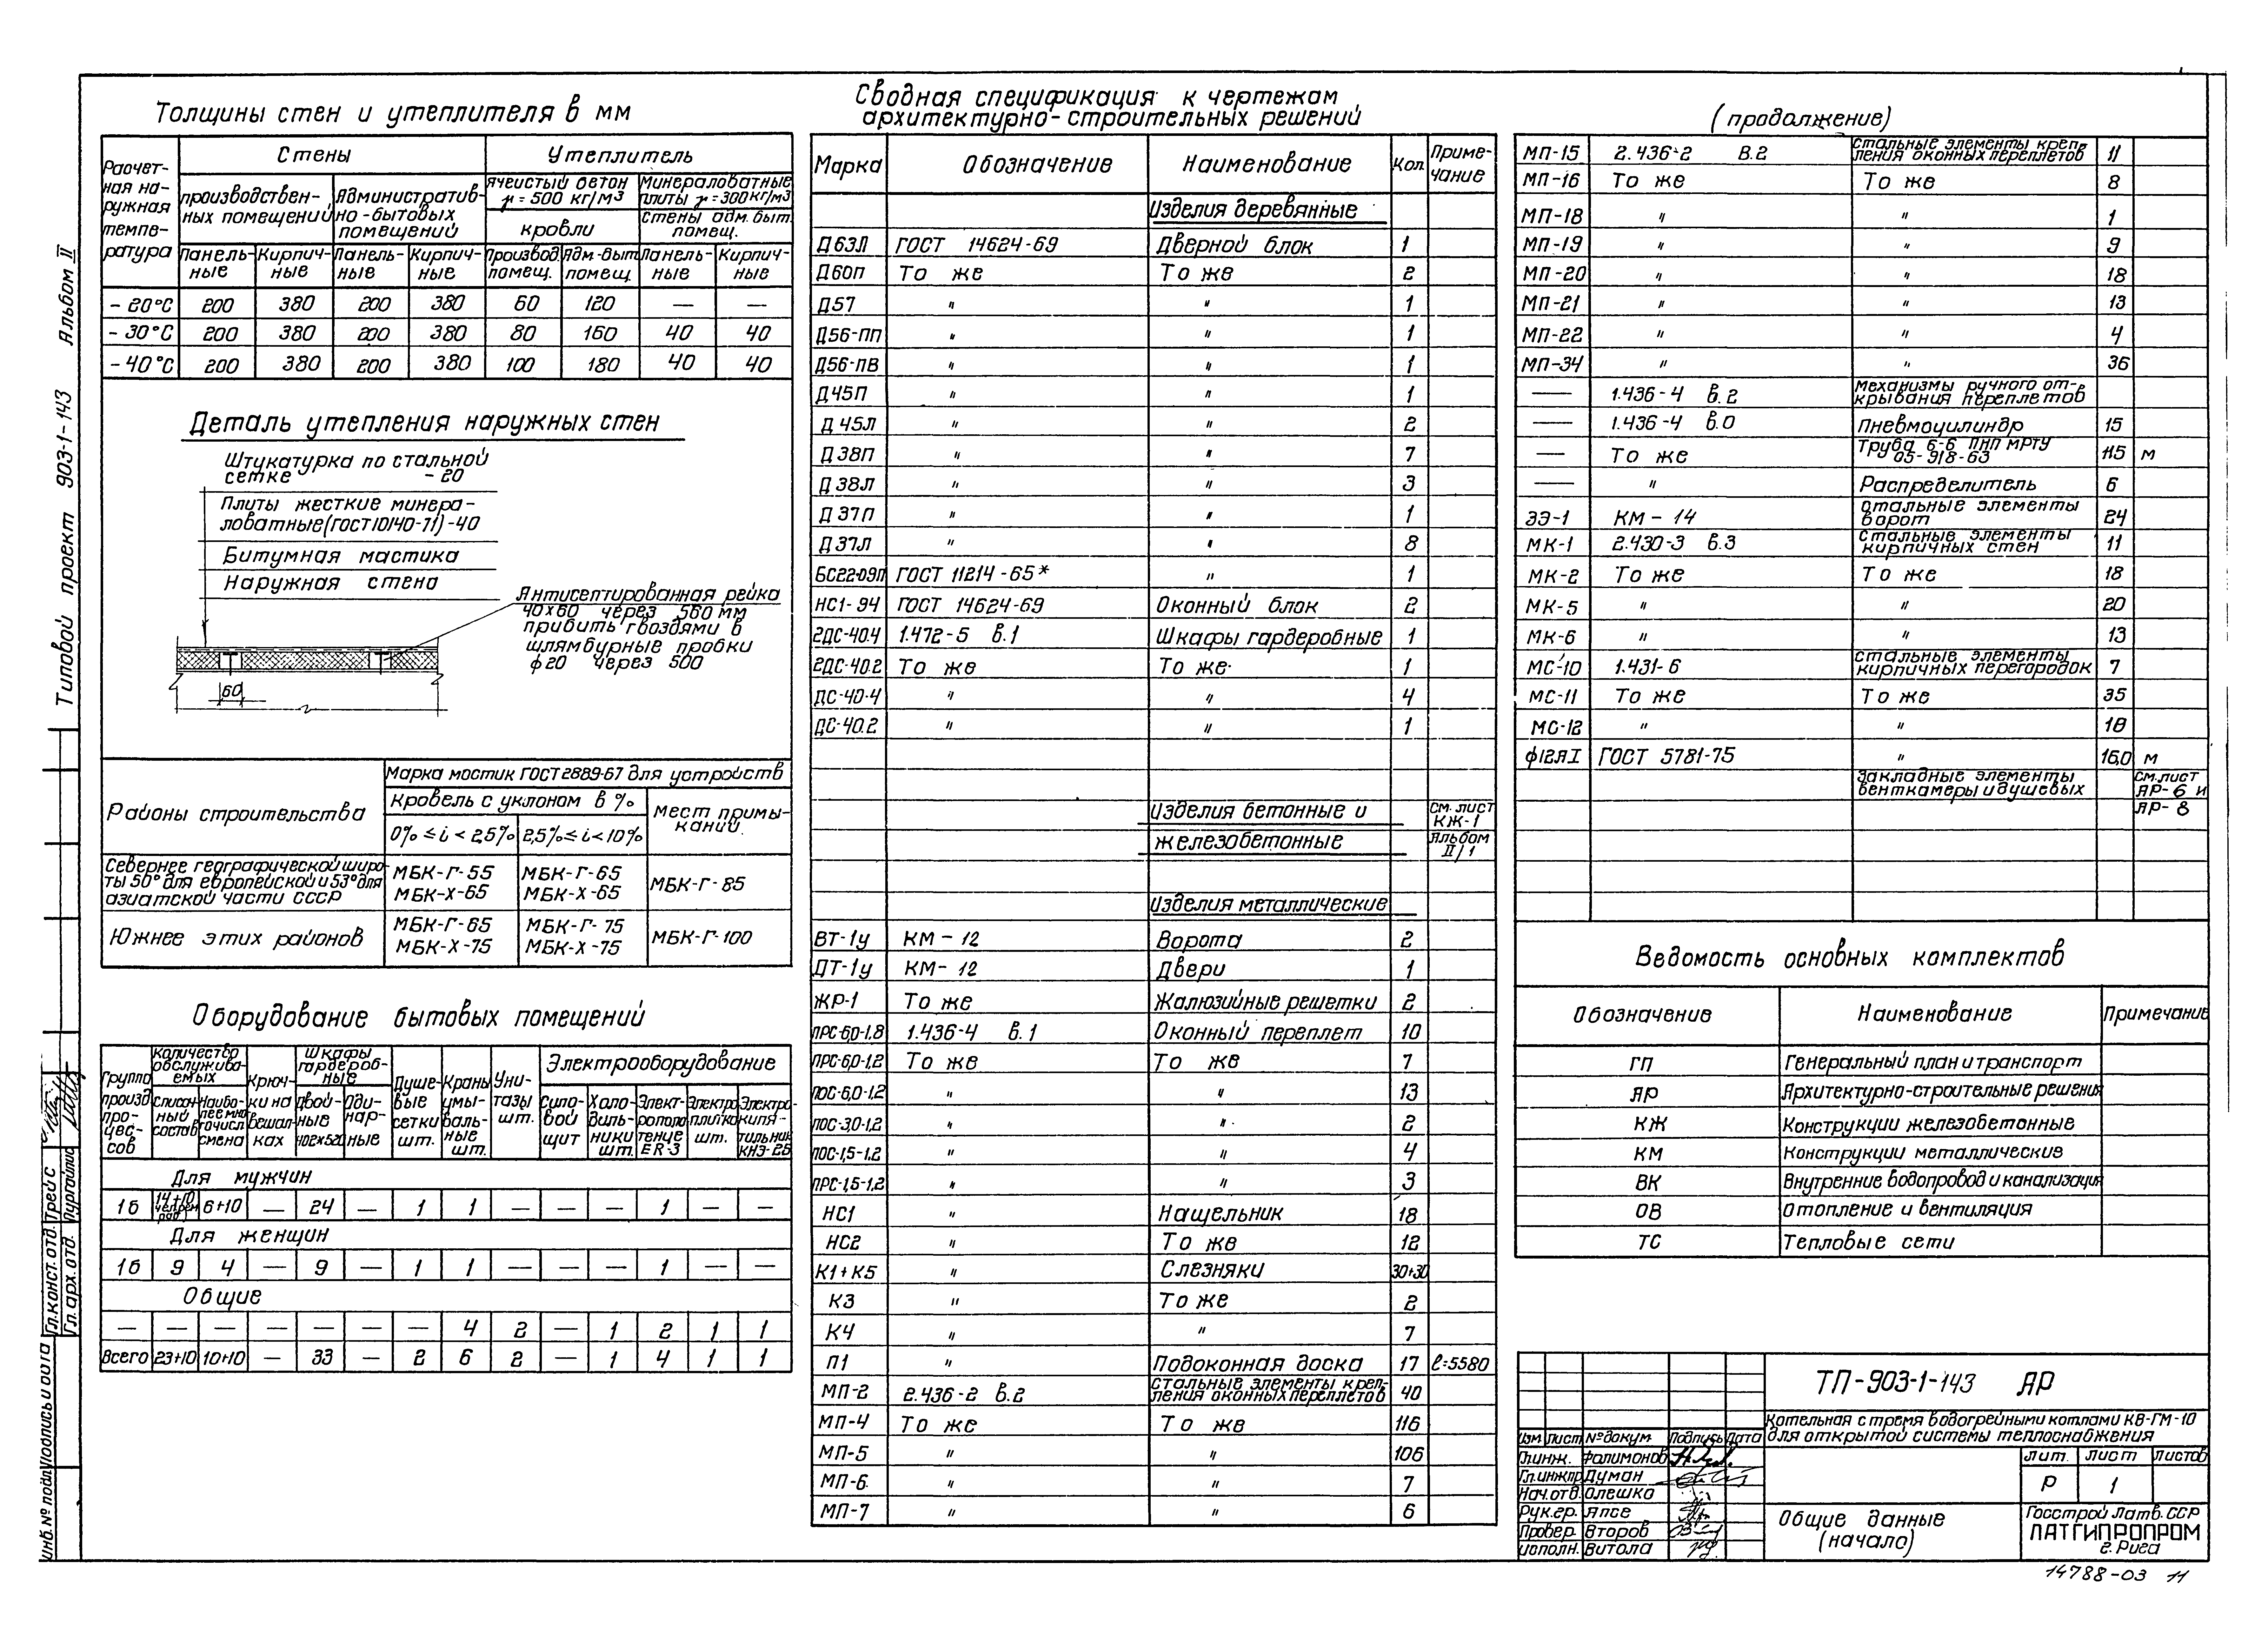 Толщины стен и утеплителя в мм
Расчетная наружная температура
Стены
Утеплитель
производственных помещений
Административно-бытовых помещений
Ячеистый бетон γ=500 кг/м3
Минераловатные плиты γ=300 кг/м3
кровли
Стены адм. быт. помещ.
Панельные Кирпичные Панельные Кирпичные Производ. помещ. Адм.-быт. помещ. Панельные Кирпичные
-20°С 200 380 200 380 60 120 — —
-30°С 200 380 200 380 80 160 40 40
-40°С 200 380 200 380 100 180 40 40
Деталь утепления наружных стен
Штукатурка по стальной
сетке - 20
Плиты жесткие минера-
ловатные (ГОСТ 10140-71) -40
Битумная мастика
Наружная стена
Антисептированная рейка
40х60 через 560 мм
прибить гвоздями в
шлямбурные пробки
ф20 через 500
60
Районы строительства
Марка мостик ГОСТ 2889-67 для устройств
Кровель с уклоном в %
мест примыканий
0% ≤ i < 2,5% 2,5% ≤ i < 10%
Севернее географической широ-
ты 50° для европейской и 53° для
азиатской части СССР
МБК-Г-55 МБК-Г-65 МБК-Г-85
МБК-Х-65 МБК-Х-65
Южнее этих районов
МБК-Г-65 МБК-Г-75 МБК-Г-100
МБК-Х-75 МБК-Х-75
Оборудование бытовых помещений
Группа произв. процессов
Количество обслуживаемых
Списочный состав
Наиболее многочисл. смена
Крючки на вешалках
Шкафы гардеробные
Двойные 402х520
Одинарные
Душевые сетки шт.
Краны умывальные шт.
Унитазы шт.
Электрооборудование
Силовой щит
Холодильники шт.
Электрополотенце ER-3
Электроплитка шт.
Электрокипятильник КНЭ-25
Для мужчин
1б 14+10 6+10 — 24 — 1 1 — — — 1 — —
Для женщин
1б 9 4 — 9 — 1 1 — — — 1 — —
Общие
— — — — — — — 4 2 — 1 2 1 1
Всего 23+10 10+10 — 33 — 2 6 2 — 1 4 1 1
Сводная спецификация к чертежам
архитектурно-строительных решений
Марка Обозначение Наименование Кол. Примечание
Изделия деревянные
Д63Л ГОСТ 14624-69 Дверной блок 1
Д60П То же То же 2
Д57 " " 1
Д56-ПП " " 1
Д56-ПВ " " 1
Д45П " " 1
Д45Л " " 2
Д38П " " 7
Д38Л " " 3
Д37П " " 1
Д37Л " " 8
БС22-09П ГОСТ 11214-65* " 1
НС1-94 ГОСТ 14624-69 Оконный блок 2
2ДС-40.4 1.472-5 в.1 Шкафы гардеробные 1
2ДС-40.2 То же То же 1
ДС-40.4 " " 4
ДС-40.2 " " 1
Изделия бетонные и железобетонные
См. лист КЖ-1 Альбом II/1
Изделия металлические
ВТ-1у КМ-12 Ворота 2
ДТ-1у КМ-12 Двери 1
ЖР-1 То же Жалюзийные решетки 2
ПРС-6,0-1,8 1.436-4 в.1 Оконный переплет 10
ПРС-6,0-1,2 То же То же 7
ПОС-6,0-1,2 " " 13
ПОС-3,0-1,2 " " 2
ПОС-1,5-1,2 " " 4
ПРС-1,5-1,2 " " 3
НС1 " Нащельник 18
НС2 " То же 12
К1+К5 " Слезняки 30+30
К3 " То же 2
К4 " " 7
П1 " Подоконная доска 17 ℓ=5580
МП-2 2.436-2 в.2 Стальные элементы крепления оконных переплетов 40
МП-4 То же То же 116
МП-5 " " 106
МП-6 " " 7
МП-7 " " 6
(продолжение)
МП-15 2.436-2 В.2 Стальные элементы крепления оконных переплетов 11
МП-16 То же То же 8
МП-18 " " 1
МП-19 " " 9
МП-20 " " 18
МП-21 " " 13
МП-22 " " 4
МП-34 " " 36
— 1.436-4 в.2 Механизмы ручного открывания переплетов
— 1.436-4 в.0 Пневмоцилиндр 15
— То же Труба 6-6 ПНП МРТУ 05-918-63 115 м
— " Распределитель 6
ЭЭ-1 КМ-14 Стальные элементы ворот 24
МК-1 2.430-3 в.3 Стальные элементы кирпичных стен 11
МК-2 То же То же 18
МК-5 " " 20
МК-6 " " 13
МС-10 1.431-6 Стальные элементы кирпичных перегородок 7
МС-11 То же То же 35
МС-12 " " 18
ф12АI ГОСТ 5781-75 " 16,0 м
Закладные элементы венткамеры и душевых См. лист АР-6 и АР-8
Ведомость основных комплектов
Обозначение Наименование Примечание
ГП Генеральный план и транспорт
АР Архитектурно-строительные решения
КЖ Конструкции железобетонные
КМ Конструкции металлические
ВК Внутренние водопровод и канализация
ОВ Отопление и вентиляция
ТС Тепловые сети
ТП-903-1-143 АР
Котельная с тремя водогрейными котлами КВ-ГМ-10
для открытой системы теплоснабжения
Изм. Лист № докум. Подпись Дата
Гл.инж. Фалимонов
Гл.инж.пр. Думан
Нач.отд. Олешко
Рук.гр. Япсе
Провер. Второв
Исполн. Витола
Лит. Лист Листов
Р 1
Общие данные
(начало)
Госстрой Латв. ССР
ЛАТГИПРОПРОМ
г. Рига
14788-03 11
Типовой проект 903-1-143 Альбом II
Гл.конст.отд. Трейс
Гл.арх.отд.
Инв.№ подл. Подпись и дата